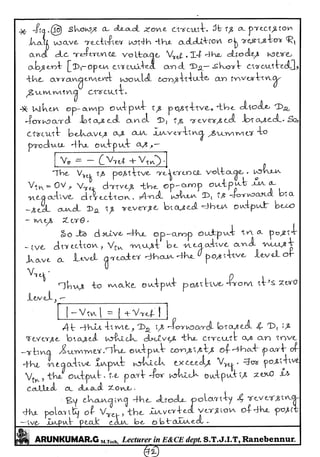 * fig.(10) shows a dead zone circuit. It is a precision
half wave rectifier with the addition of resistor R1
and dc reference voltage Vref. If the diodes were
absent [D1-open circuited and D2- short circuited],
the arrangement would constitute an inverting
summing circuit.
* When op-amp output is positive, the diode D2
forward biased and D1 is reversed biased. So
circuit behaves as an inverting summer to
produce the output as,-
Vo = - (Vref + Vin).
The Vref is positive reference voltage. when
Vin = 0V, Vref drives the op-amp output in a
negative direction. And when D1 is forward bia
-sed and D2 is reverse biased then output beco
- mes zero.
So to drive the op-amp output in a posit
- ive direction, Vin must be negative and must
have a level greater than the positive level of
Vref.
Thus to make output positive from it's zero
level, -
|-Vin| = |+Vref|
At this time, D2 is forward biased & D1 is
reverse biased which drives the circuit as an inve
-rting summer. The output consists of that part of
the negative input which exceeds Vref. For positive
Vin, the output. i.e part for which output is zero is
called a dead zone.
By changing the diode polarity & reversing
the polarity of Vref, the inverted version of the posit
-ive input peak can be obtained.
ARUNKUMAR.G M.Tech, Lecturer in E&CE dept. S.T.J.I.T, Ranebennur.
72